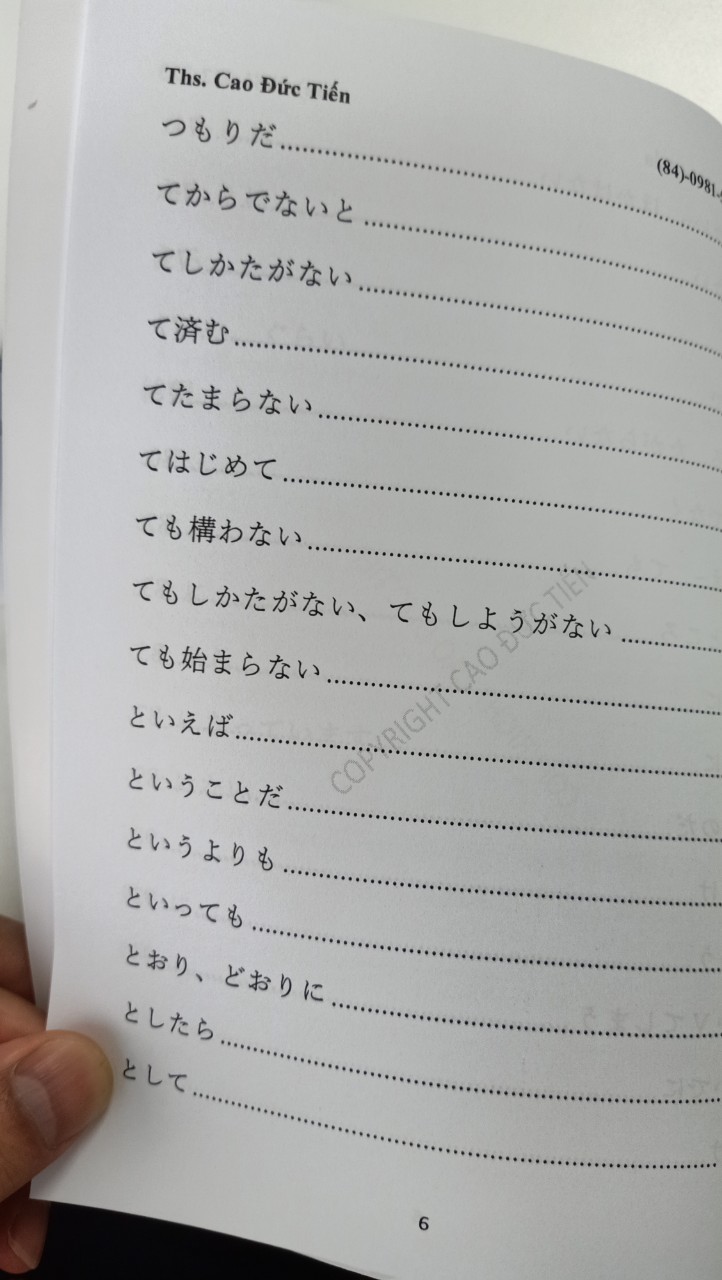 Ths. Cao Đức Tiến
(84)-0981-
つもりだ
てからでないと
てしかたがない
て済む
てたまらない
てはじめて
ても構わない
てもしかたがない、てもしようがない
ても始まらない
といえば
ということだ
というよりも
といっても
とおり、どおりに
としたら
として
COPYRIGHT CAO ĐỨC TIẾN
6